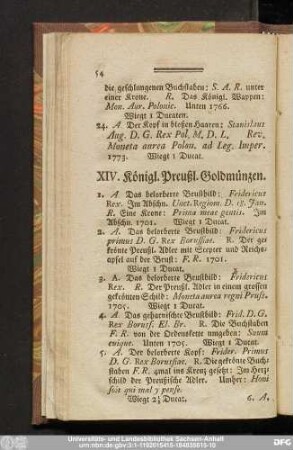 54
die geschlungenen Buchstaben: S. A. R. unter
einer Krone. R. Das Königl. Wappen:
Mon. Aur. Polonic. Unten 1766.
Wiegt 1 Ducaten.
24. A Der Kopf in bloßen Haaren: Stanislaus
Aug. D. G. Rex Pol. M. D. L, Rev.
Moneta aurea Polon. ad Leg. Imper.
1773. Wiegt 1 Ducat.
XIV. Königl. Preußl. Goldmünzen.
1. A Das belorberte Brustbild: Fridericus
Rex. Im Abschn. Unct. Regiom. D. 18. Jan.
R. Eine Krone: Prima meae gentis. Im
Abschn. 1701. Wiegt 1 Ducat.
2. A Das belorberte Brustbild: Fridericus
primus D. G. Rex Borussiae. R. Der ge
krönte Preußl. Adler mit Scepter und Reichs-
apfel auf der Brust: F. R. 1701.
Wiegt 1 Ducat.
3. A. Das belorberte Brustbild: Fridericus
Rex. R. Der Preußl. Adler in einem grossen
gekrönten Schild: Moneta aurea regni Pruss.
1705. Wiegt 1 Ducat.
4. A Das geharnischte Brustbild: Frid. D. G.
Rex Boruss. El. Br. R. Die Buchstaben
F. R. von der Ordenskette umgeben: Suum
cuique. Unten 1705. Wiegt 1 Ducat.
5. A Der belorberte Kopf: Frider. Primus
D. G. Rex Borussiae. R. Die gekrönte Buch-
staben F. R. 4mal ins Kreuz gesetzt: Im Herz-
schild der Preußische Adler. Umher: Honi
soit qui mal y pense.
Wiegt 2½ Ducat. 6. A.
Universitäts- und Landesbibliothek Sachsen-Anhalt
DFG